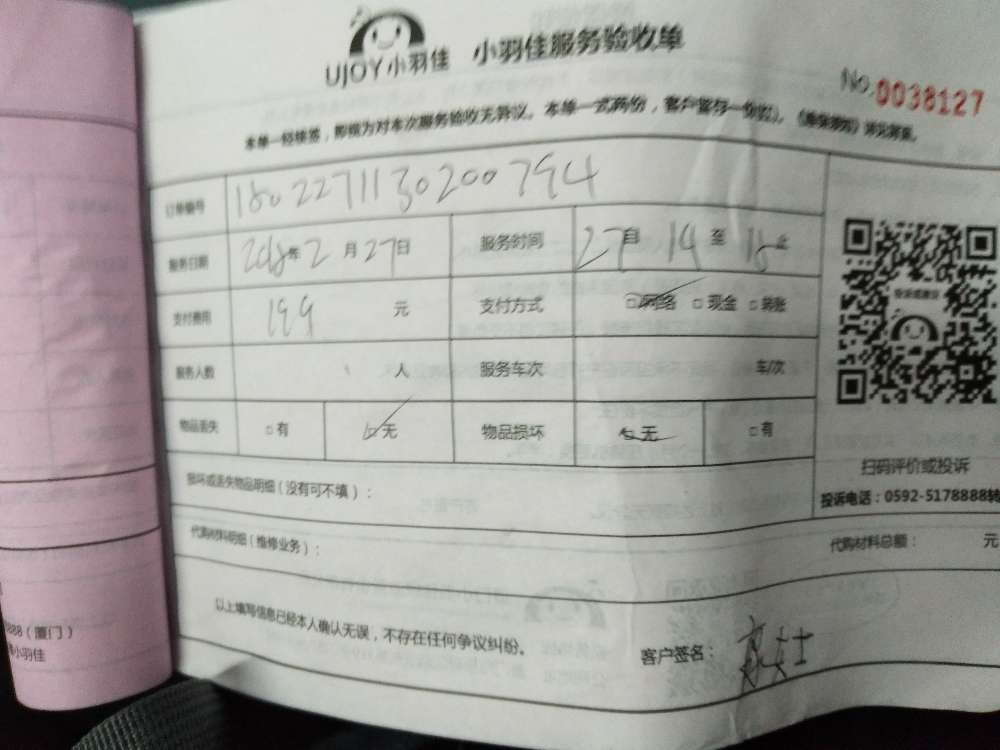 UJOY小羽佳 小羽佳服务验收单
No.0038127
本单一经续签，即视为对本次服务验收无异议。本单一式两份，客户留存一份
订单编号 1802271130200794
服务日期 2018年2月27日 服务时间 27自14至18止
支付费用 199元 支付方式 □网络 □现金 □转账
服务人数 人 服务车次 车/次
物品丢失 □有 □无 物品损坏 □无 □有
扫码评价或投诉
损坏或丢失物品明细（没有可不填）：
投诉电话：0592-5178888转
代购材料明细（维修业务）： 代购材料总额： 元
以上填写信息已经本人确认无误，不存在任何争议纠纷。
客户签名： 女士
888（厦门）
小羽佳